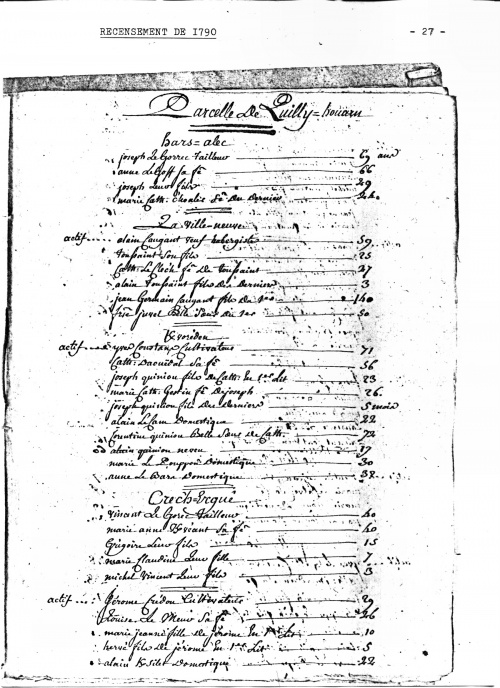 RECENSEMENT DE 1790 - 27 -
Parcelle De Quilly=houarn
hars=alec
joseph Le Gorrec tailleur 69 ans
anne Le goff Sa fe 66
joseph leur fils 29
marie Cath. fe Du Dernier
La ville=neuve
actif alain Caugant veuf 59
toussaint Son fils 25
Cath. fe De toussaint 27
alain toussaint fils Du Dernier 3
jean Germain Caugant fils Du 1er 40
Belle Soeur Du 1er 50
actif yves Constans Cultivateur 71
Cath. Sa fe 56
joseph quinion fils De Cath. En 1er Lit 23
marie Cath. fe De joseph 26
joseph quinion fils Du Dernier 5 mois
alain Le Cam Domestique 22
Corentine quinion Belle Soeur De Cath. 72
alain quinion neveu 17
marie Le Domestique 30
anne Le Domestique 32
vincent Le Tailleur 40
marie anne Sa fe 40
Grégoire Leur fils 15
marie Claudine Leur fille 7
michel vincent Leur fils 3
actif Jérome Cultivateur 29
Louise Le Meur Sa fe 26
marie jeanne fille De jérome En 1er Lit 10
hervé fils De jérome En 1er Lit 5
alain Domestique 22